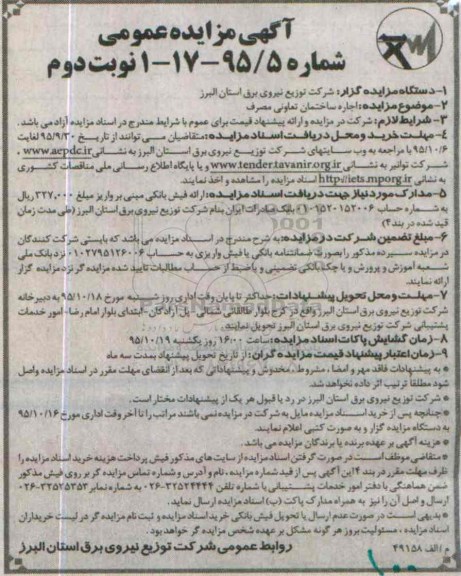 آگهی مزایده عمومی
شماره ۹۵/۵-۱۷-۱ نوبت دوم
۱- دستگاه مزایده گزار: شرکت توزیع نیروی برق استان البرز
۲- موضوع مزایده: اجاره ساختمان تعاونی مصرف
۳- شرایط لازم: شرکت در مزایده و ارائه پیشنهاد قیمت برای عموم با شرایط مندرج در اسناد مزایده آزاد می باشد.
۴- مهلت خرید و محل دریافت اسناد مزایده: متقاضیان می توانند از تاریخ ۹۵/۹/۳۰ لغایت
۹۵/۱۰/۶ با مراجعه به وب سایتهای شرکت توزیع نیروی برق استان البرز به نشانی www.aepdc.ir ,
شرکت توانیر به نشانی www.tender.tavanir.org.ir و یا پایگاه اطلاع رسانی ملی مناقصات کشوری
به نشانی http://iets.mporg.ir اسناد مزایده را مشاهده و اخذ نمایند.
۵- مدارک مورد نیاز جهت دریافت اسناد مزایده: ارائه فیش بانکی مبنی بر واریز مبلغ ۳۲۷,۰۰۰ ریال
به شماره حساب بانک صادرات ایران بنام شرکت توزیع نیروی برق استان البرز (طی مدت زمان
قید شده در بند ۴)
۶- مبلغ تضمین شرکت در مزایده: به شرح مندرج در اسناد مزایده می باشد که بایستی شرکت کنندگان
در مزایده سپرده مذکور را بصورت ضمانتنامه بانکی یا فیش واریزی به حساب ۰۱۰۲۷۹۵۱۲۶۰۰۶ نزد بانک ملی
شعبه آموزش و پرورش و یا چک بانکی تضمینی و یا ضبط از حساب مطالبات تایید شده مزایده گر نزد مزایده گزار
ارائه نمایند.
۷- مهلت و محل تحویل پیشنهادات: حداکثر تا پایان وقت اداری روز شنبه مورخ ۹۵/۱۰/۱۸ به دبیرخانه
شرکت توزیع نیروی برق استان البرز واقع در کرج بلوار طالقانی شمالی - پل آزادگان - ابتدای بلوار امام رضا - امور خدمات
پشتیبانی شرکت توزیع نیروی برق استان البرز تحویل نمایند.
۸- زمان گشایش پاکات اسناد مزایده: ساعت ۱۶:۰۰ روز یکشنبه ۹۵/۱۰/۱۹
۹- زمان اعتبار پیشنهاد قیمت مزایده گران: از تاریخ تحویل پیشنهاد بمدت سه ماه
* به پیشنهادات فاقد مهر و امضا، مشروط، مخدوش و پیشنهاداتی که بعد از انقضای مهلت مقرر در اسناد مزایده واصل
شود مطلقا ترتیب اثر داده نخواهد شد.
* شرکت توزیع نیروی برق استان البرز در رد یا قبول هر یک از پیشنهادات مختار است.
* چنانچه پس از خرید اسناد مزایده مایل به شرکت در مزایده نمی باشند مراتب را تا آخر وقت اداری مورخ ۹۵/۱۰/۱۶
به دستگاه مزایده گزار و به صورت کتبی اعلام نمایند.
* هزینه آگهی بر عهده برنده یا برندگان مزایده می باشد.
* متقاضی موظف است در صورت گرفتن اسناد مزایده از سایت های مذکور فیش پرداخت هزینه خرید اسناد مزایده را
ظرف مهلت مقرر در بند ۴ این آگهی پس از قید شماره مزایده، نام و آدرس و شماره تماس مزایده گر بر روی فیش مذکور
ضمن هماهنگی با دفتر امور خدمات پشتیبانی با شماره تلفن ۳۲۵۲۴۴۴۴-۰۲۶ به شماره نمابر ۳۲۵۲۵۳۵۳-۰۲۶
ارسال و اصل آن را نیز به همراه مدارک پاکت (ب) اسناد مزایده ارسال نماید.
* بدیهی است در صورت عدم ارسال یا تحویل فیش بانکی خرید اسناد مزایده و ثبت نام مزایده گر در لیست خریداران
اسناد مزایده، مسئولیت بروز هر گونه مشکل بر عهده شخص مزایده گر خواهد بود.
م الف ۴۹۱۵۸ روابط عمومی شرکت توزیع نیروی برق استان البرز